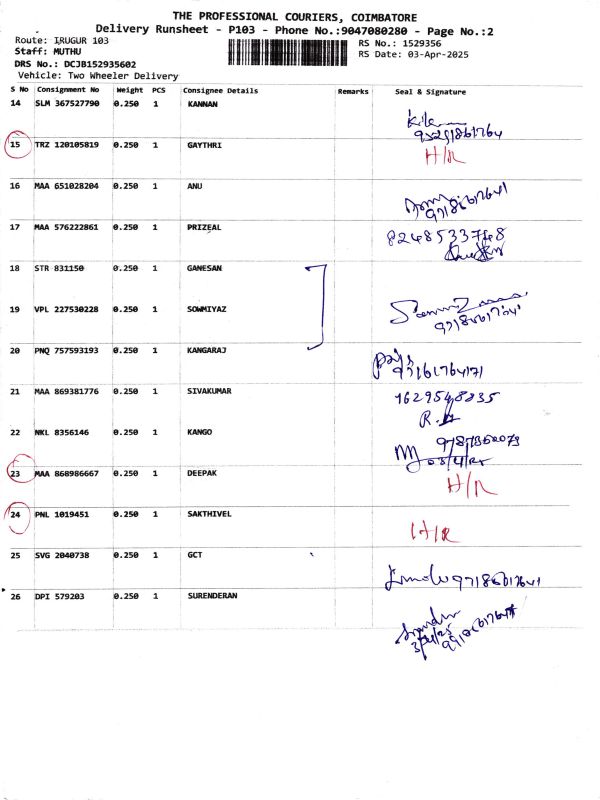 THE PROFESSIONAL COURIERS, COIMBATORE
Delivery Runsheet - P103 - Phone No.:9047080280 - Page No.:2
Route: IRUGUR 103
RS No.: 1529356
Staff: MUTHU
RS Date: 03-Apr-2025
DRS No.: DCJB152935602
Vehicle: Two Wheeler Delivery
S No Consignment No Weight PCS Consignee Details Remarks Seal & Signature
14 SLM 367527790 0.250 1 KANNAN
15 TRZ 120105819 0.250 1 GAYTHRI H/R
16 MAA 651028204 0.250 1 ANU
17 MAA 576222861 0.250 1 PRIZEAL 8248533748
18 STR 831150 0.250 1 GANESAN
19 VPL 227530228 0.250 1 SOWMIYAZ
20 PNQ 757593193 0.250 1 KANGARAJ
21 MAA 869381776 0.250 1 SIVAKUMAR
22 NKL 8356146 0.250 1 KANGO
23 MAA 868986667 0.250 1 DEEPAK H/R
24 PNL 1019451 0.250 1 SAKTHIVEL H/R
25 SVG 2040738 0.250 1 GCT
26 DPI 579203 0.250 1 SURENDERAN